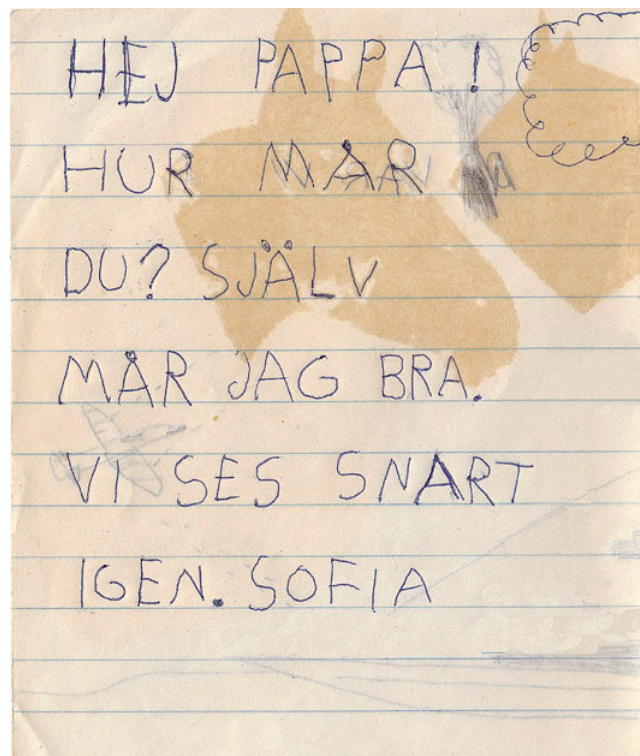 HEJ PAPPA!
HUR MÅR
DU? SJÄLV
MÅR JAG BRA.
VI SES SNART
IGEN. SOFIA